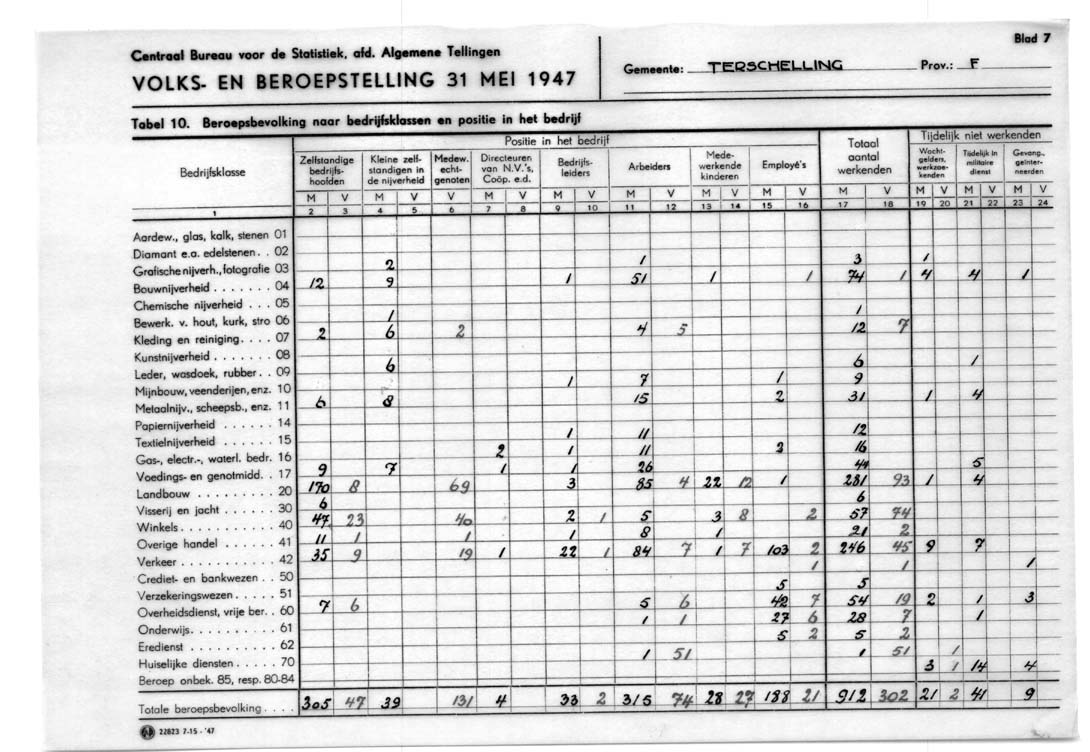 Blad 7
Centraal Bureau voor de Statistiek, afd. Algemene Tellingen
VOLKS- EN BEROEPSTELLING 31 MEI 1947
Gemeente: TERSCHELLING Prov.: F
Tabel 10. Beroepsbevolking naar bedrijfsklassen en positie in het bedrijf
Bedrijfsklasse
Positie in het bedrijf
Zelfstandige
bedrijfs-
hoofden
Kleine zelf-
standigen in
de nijverheid
Medew.
echt-
genoten
Directeuren
van N.V.'s,
Coöp. e.d.
Bedrijfs-
leiders
Arbeiders
Mede-
werkende
kinderen
Employé's
Totaal
aantal
werkenden
Tijdelijk niet werkenden
Wacht-
gelders,
werkzoe-
kenden
Tijdelijk in
militaire
dienst
Gevang.,
geïnter-
neerden
M V M V V M V M V M V M V M V M V M V M V M V
1 2 3 4 5 6 7 8 9 10 11 12 13 14 15 16 17 18 19 20 21 22 23 24
Aardew., glas, kalk, stenen 01
Diamant e.a. edelstenen . . 02
Grafische nijverh., fotografie 03 2 1 3 1
Bouwnijverheid . . . . . . . 04 12 9 1 51 1 1 74 1 4 4 1
Chemische nijverheid . . . 05
Bewerk. v. hout, kurk, stro 06 1 1
Kleding en reiniging. . . . 07 2 6 2 4 5 12 7
Kunstnijverheid . . . . . . . 08
Leder, wasdoek, rubber. . 09 6 6 1
Mijnbouw, veenderijen, enz. 10 1 7 1 9
Metaalnijv., scheepsb., enz. 11 6 8 15 2 31 1 4
Papiernijverheid . . . . . . 14
Textielnijverheid . . . . . . 15 1 11 12
Gas-, electr.-, waterl. bedr. 16 2 1 11 2 16
Voedings- en genotmidd. . 17 9 7 1 1 26 44 5
Landbouw . . . . . . . . . 20 170 8 69 3 85 4 22 12 1 281 93 1 4
Visserij en jacht . . . . . . 30 6 6
Winkels. . . . . . . . . . . 40 47 23 40 2 1 5 3 8 2 57 74
Overige handel . . . . . . 41 11 1 1 1 8 1 21 2
Verkeer . . . . . . . . . . . 42 35 9 19 1 22 1 84 7 1 7 103 2 246 45 9 7
Crediet- en bankwezen . . 50 1 1 1
Verzekeringswezen . . . . . 51 5 5
Overheidsdienst, vrije ber. . 60 7 6 5 6 42 7 54 19 2 1 3
Onderwijs. . . . . . . . . . 61 1 1 27 6 28 7 1
Eredienst . . . . . . . . . . 62 5 2 5 2
Huiselijke diensten . . . . . 70 1 51 1 51 1
Beroep onbek. 85, resp. 80-84 3 1 14 4
Totale beroepsbevolking . . . . 305 47 39 131 4 33 2 315 74 28 27 188 21 912 302 21 2 41 9
22823 7-15 - '47